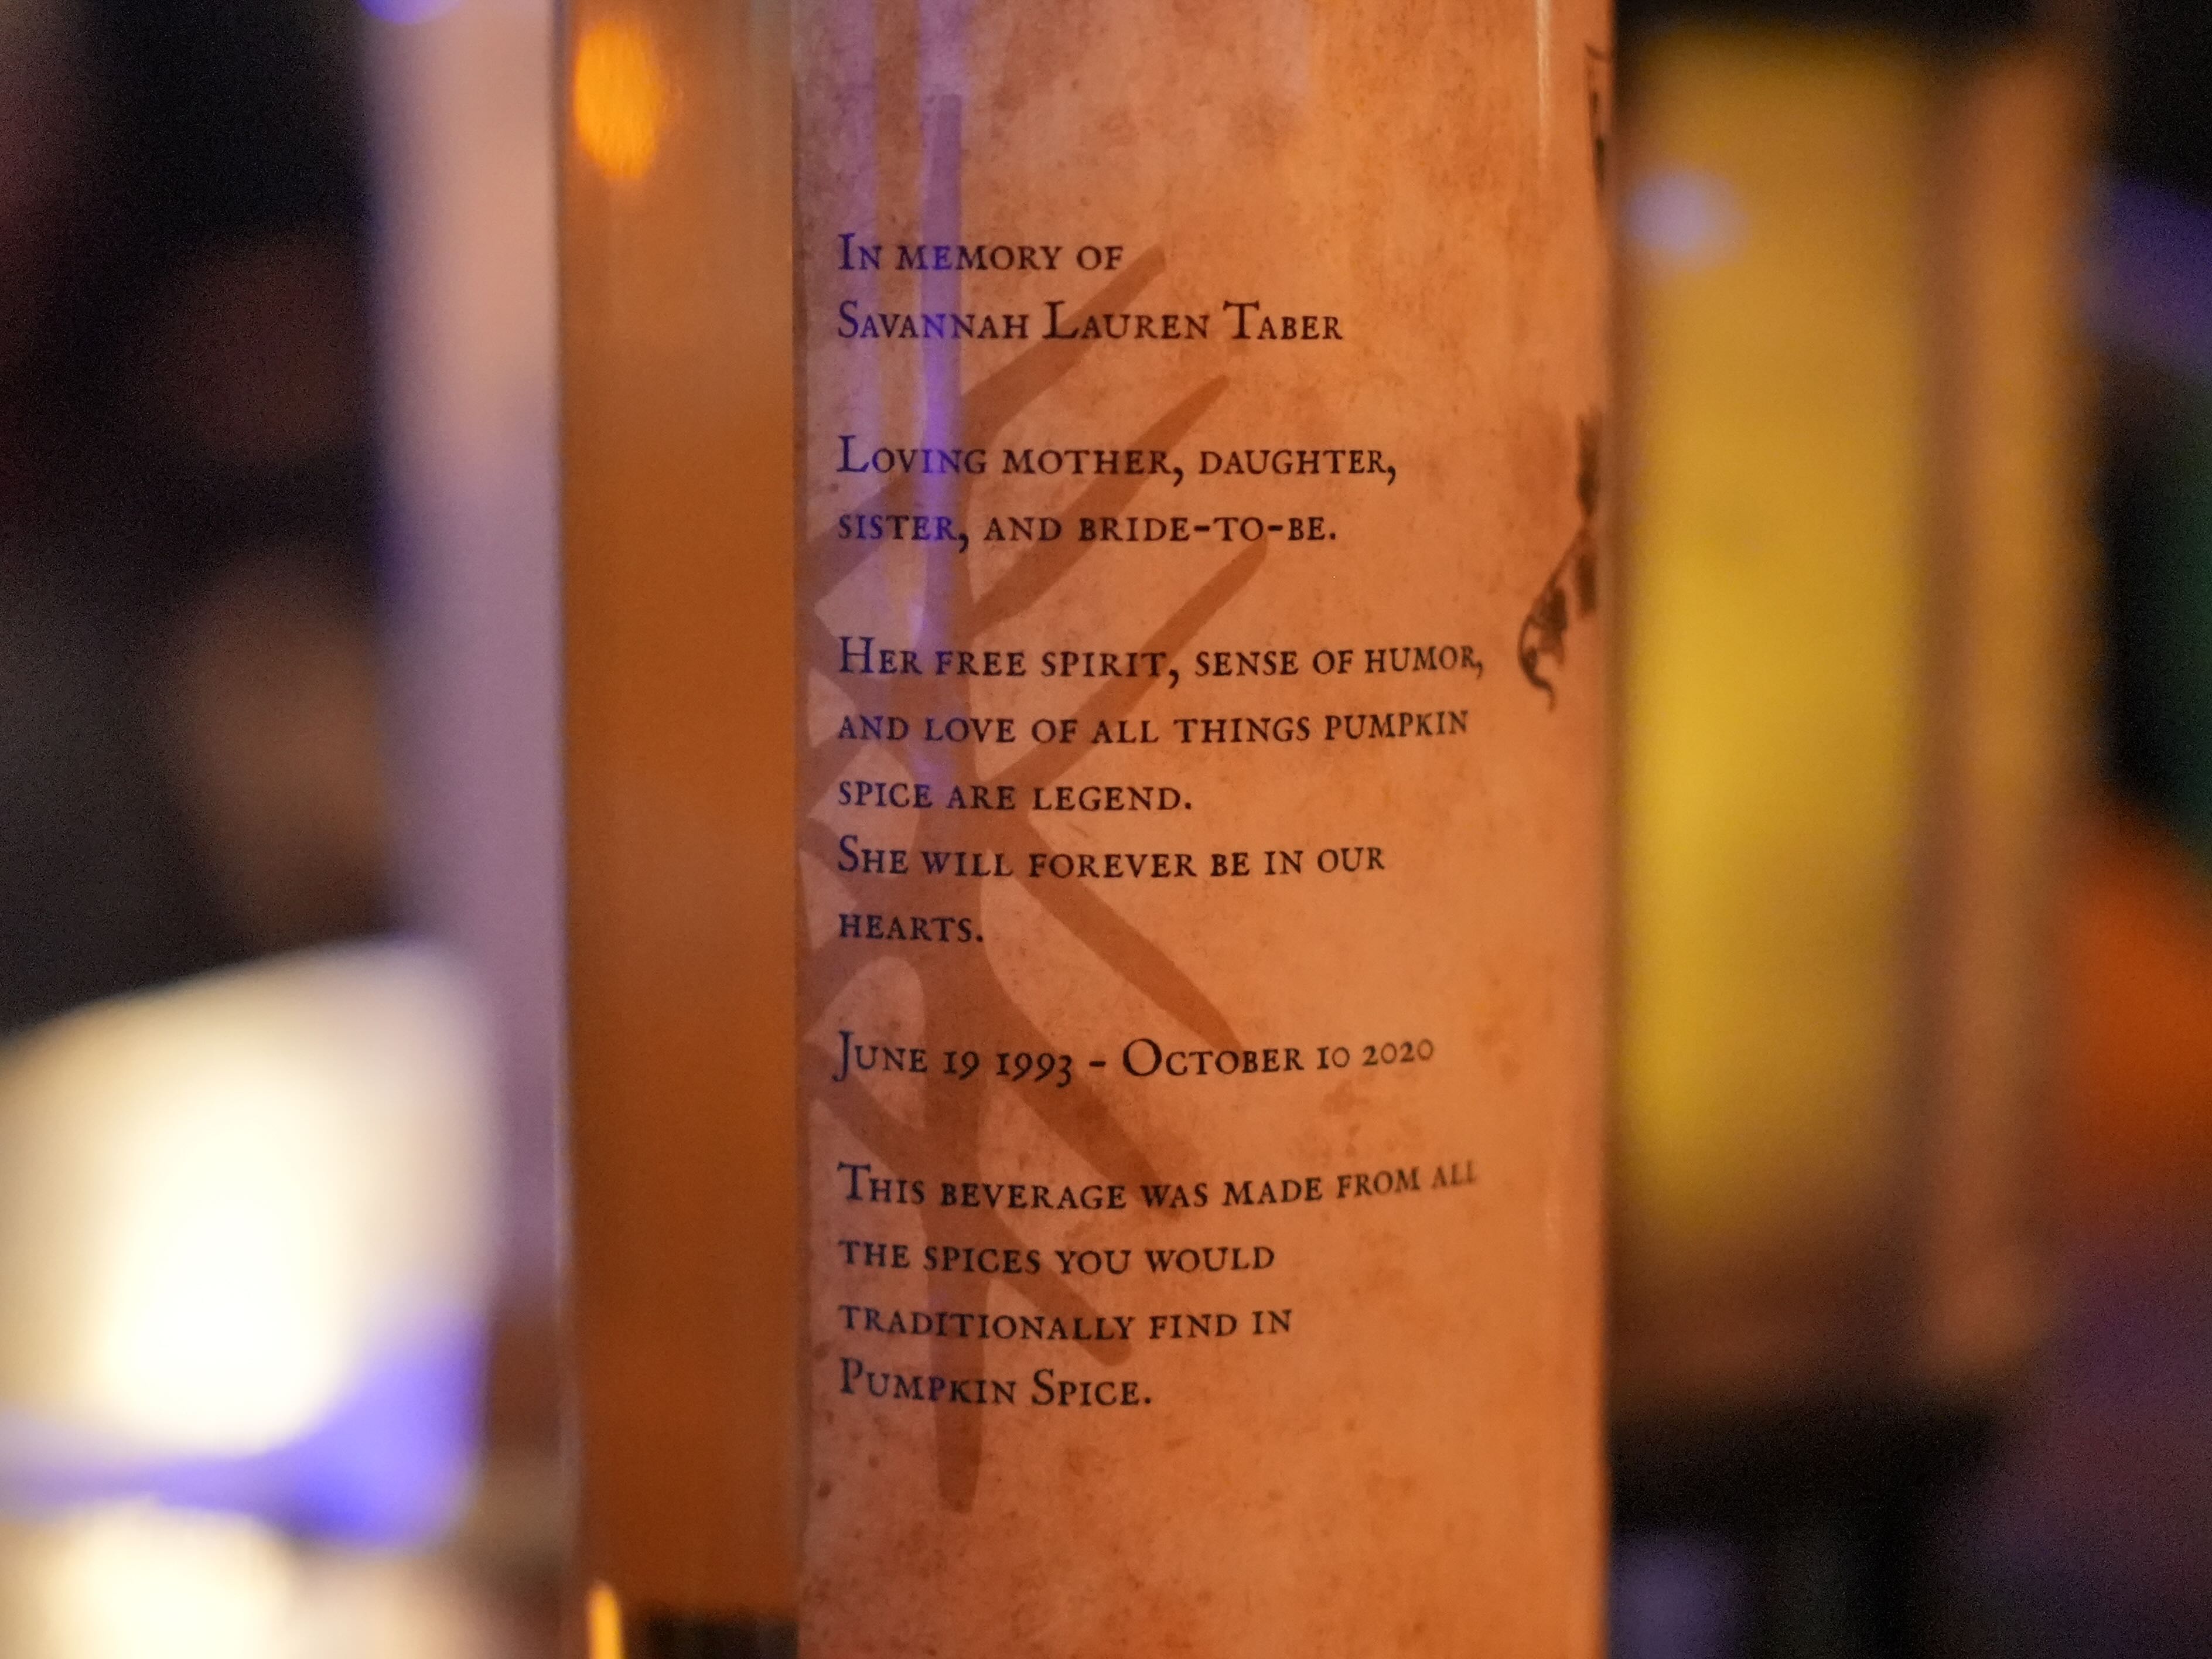 In memory of
Savannah Lauren Taber
Loving mother, daughter,
sister, and bride-to-be.
Her free spirit, sense of humor,
and love of all things pumpkin
spice are legend.
She will forever be in our
hearts.
June 19 1993 - October 10 2020
This beverage was made from all
the spices you would
traditionally find in
Pumpkin Spice.